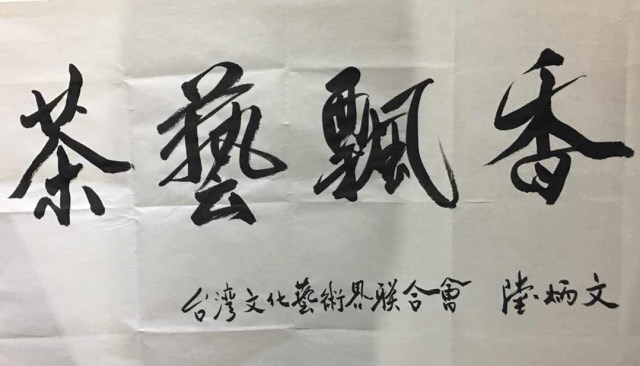 茶藝飄香
台湾文化藝術界联合會 陸炳文